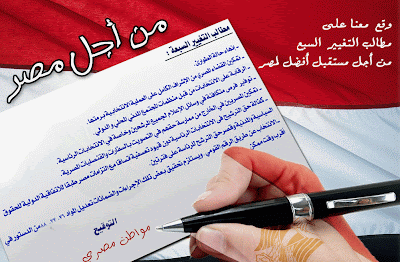 من أجل مصر
وقع معنا على
مطالب التغيير السبع
من أجل مستقبل أفضل لمصر
مطالب التغيير السبعة :
- إنهاء حالة الطوارئ.
- تمكين القضاء المصري من الإشراف الكامل على العملية الانتخابية برمتها.
- الرقابة على الانتخابات من قبل منظمات المجتمع المدني المحلي والدولي
- توفير فرص متكافئة في وسائل الإعلام لجميع المرشحين وخاصة في الانتخابات الرئاسية.
- تمكين المصريين في الخارج من ممارسة حقهم في التصويت بالسفارات والقنصليات المصرية.
- كفالة حق الترشح في الانتخابات الرئاسية دون قيود تعسفية اتساقا مع التزامات مصر طبقا للاتفاقية الدولية للحقوق
السياسية والمدنية وقصر حق الترشح للرئاسة على فترتين.
- الانتخاب عن طريق الرقم القومي. ويستلزم تحقيق بعض تلك الإجراءات والضمانات تعديل المواد ٧٦، ٧٧، ٨٨ من الدستور في
أقرب وقت ممكن.
التوقيع
مواطن مصري